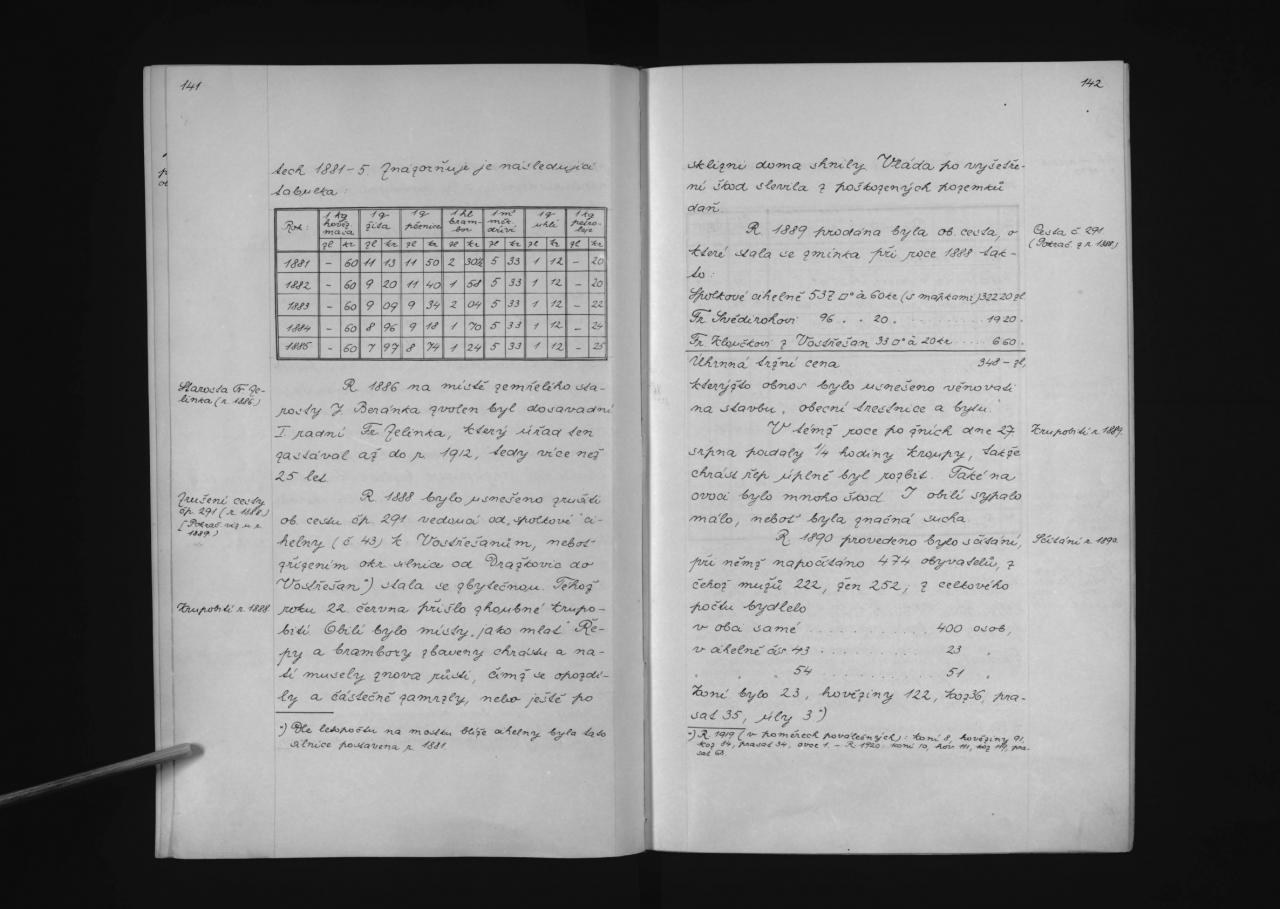 141
tech 1881-5. Znázorňuje je následující
tabulka:
Rok: 1 kg hověz. masa 1 q žita 1 q pšenice 1 hl bram- bor 1 m³ měk. dříví 1 q uhlí 1 kg petro- leje
zl kr zl kr zl kr zl kr zl kr zl kr zl kr
1881 - 60 11 13 11 50 2 30½ 5 33 1 12 - 20
1882 - 60 9 20 11 40 1 58 5 33 1 12 - 20
1883 - 60 9 09 9 34 2 04 5 33 1 12 - 22
1884 - 60 8 96 9 18 1 70 5 33 1 12 - 24
1885 - 60 7 97 8 74 1 24 5 33 1 12 - 25
Starosta Fr. Je-
línka (r. 1886)
R. 1886 na místě zemřelého sta-
rosty J. Beránka zvolen byl dosavadní
I. radní Fr. Jelínka, který úřad ten
zastával až do r. 1912, tedy více než
25 let.
Zrušení cesty
čp. 291 (r. 1888)
[Pokrač. viz u r.
1889)
R. 1888 bylo usneseno zrušiti
ob. cestu čp. 291 vedoucí od „spolkové“ ci-
helny (č. 43) k Vostřešanům, neboť
zřízením okr. silnice od Dražkovic do
Vostřešan*) stala se zbytečnou. Téhož
Krupobití r. 1888.
roku 22. června přišlo zhoubné krupo-
bití. Obilí bylo místy „jako mlat“. Ře-
py a brambory zbaveny chrástu a na-
ti musely znova růsti, čímž se opozdi-
ly a částečně zamrzly, nebo ještě po
*) Dle letopočtu na mostku blíže cihelny byla tato
silnice postavena r. 1881.
142
sklizni doma shnily. Vláda po vyšetře-
ní škod slevila z poškozených pozemků
daň.
Cesta č. 291
(Pokrač. z r. 1888)
R. 1889 prodána byla ob. cesta, o
které stala se zmínka při roce 1888 tak-
to:
Spolkové cihelně 537 □° à 60 kr (s mapkami) 322·20 zl.
Fr. Svédirohovi 96 . . 20 . . . . . . . . 19·20 .
Fr. Kloučkovi z Vostřešan 33 □° à 20 kr . . . . . 6·60 .
Úhrnná tržní cena 348 - zl,
kterýžto obnos bylo usneseno věnovati
na stavbu „obecní trestnice a bytu“.
Krupobití r. 1889.
V témž roce po žních dne 27.
srpna padaly ¼ hodiny kroupy, takže
chrást řep úplně byl rozbit. Také na
ovoci bylo mnoho škod. I obilí sypalo
málo, neboť byla značná sucha.
Sčítání r. 1890.
R. 1890 provedeno bylo sčítání,
při němž napočítáno 474 obyvatelů, z
čehož mužů 222, žen 252; z celkového
počtu bydlelo
v obci samé . . . . . . . . . . . 400 osob,
v cihelně čís. 43 . . . . . . . . . . 23 „
„ „ „ 54 . . . . . . . . . . 51 „
Koní bylo 23, hověziny 122, koz 36, pra-
sat 35, úly 3*)
*) R. 1919 (v poměrech poválečných): koní 8, hověziny 91,
koz 84, prasat 34, ovce 1. - R. 1920: koní 10, hov. 111, koz 119, pra-
sat 63.